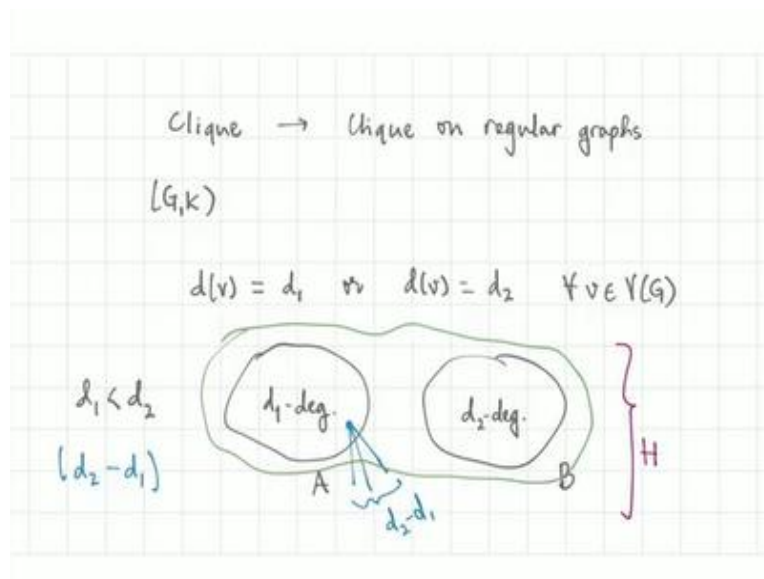 Clique → Clique on regular graphs
(G,K)
d(v) = d₁ or d(v) = d₂ ∀ v ∈ V(G)
d₁ < d₂
d₁-deg.
d₂-deg.
(d₂-d₁)
A
B
H
d₂-d₁